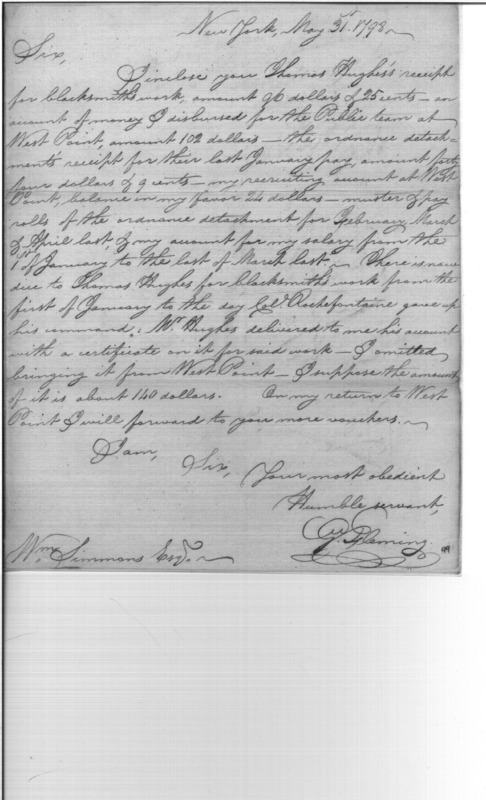 New York, May 31st. 1798.
Sir,
I inclose you Thomas Hughes's receipt
for blacksmiths work, amount 96 dollars & 25 cents – an
account of money I disbursed for the Public team at
West Point, amount 102 dollars – the ordnance detach-
ments receipt for their last January pay, amount forty
four dollars & 9 cents – my recruiting account at West
Point, balance in my favor 24 dollars – muster & pay
rolls of the ordnance detachment for February, March
& April last, & my account for my salary from the
1st. of January to the last of March last. There is now
due to Thomas Hughes for blacksmiths work from the
first of January to the day Colo. Rochefontaine gave up
his command: Mr. Hughes delivered to me his account
with a certificate on it for said work – I omitted
bringing it from West Point – I suppose the amount
of it is about 140 dollars. On my return to West
Point I will forward to you more vouchers.
I am,
Sir,
Your most obedient
Humble servant,
G. Fleming.
Wm. Simmons Esqr.